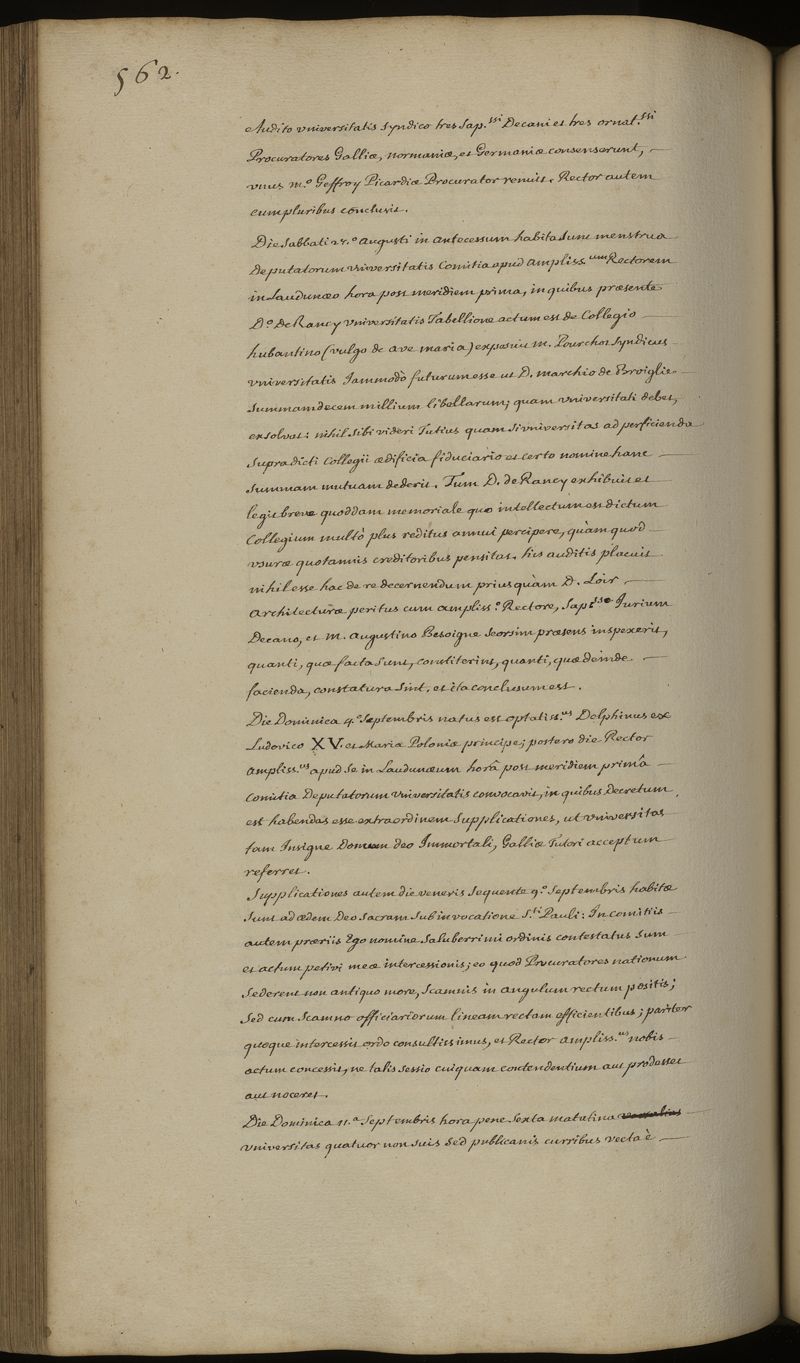 562.
Audito Universitatis Syndico tres Sap.ssi Decani et tres ornat.ssi
Procuratores Galliæ, Normaniæ, et Germaniæ consenserunt,
unus m.o Geffroy Picardiæ Procurator renuit. Rector autem
cum pluribus conclusit.
Die Sabbati 27.a Augusti in antecessum habita sunt menstrua
Deputatorum Universitatis Comitia apud Ampliss.um Rectorem
in Laudunæo hora post meridiem prima, in quibus præsente
D.o De Rancy Universitatis Tabellione actum est de Collegio
hubantino (vulgo de ave maria) exposuit M. Pourchot Syndicus
Universitatis Jammodò futurum esse ut D. marchio de
Summam decem millium libellarum; quam Universitati debet,
exsolvat: nihil sibi videri Tutius quam si universitas ad perficienda
Supradicti Collegii ædificia fiduciario et certo nomine hanc
Summam mutuam dederit. Tum D. de Rancy exhibuit et
legit breve quoddam memoriale quo intellectum est dictum
Collegium multò plus reditus annui percipere, quàm quod
usuræ quotannis creditoribus pensitat. his auditis placuit
nihil esse hac de re decernendum priusquàm D. Loir
Architecturæ peritus cum ampliss.o Rectore, Sap.sso Jurium
Decano, et M. Augustino Besoigne seorsim præsens inspexerit,
quanti, quæ facta sunt, constiterint, quanti, quæ deinde
facienda, constatura sint. et ita conclusum est.
Die Dominica 4.a Septembris natus est optatiss.us Delphinus ex
Ludovico XV. et Maria Poloniæ principe; postero die Rector
ampliss.us apud se in Laudunæum horâ post meridiem primâ
Comitia Deputatorum Universitatis convocavit, in quibus Decretum
est habendas esse extraordinem Supplicationes, ut Universitas
tam Insigne Donum Deo Immortali, Galliæ Tutori acceptum
referret.
Supplicationes autem die veneris sequente 9.a Septembris habitæ
sunt ad ædem Deo Sacram Sub invocatione S.ti Pauli: In comitiis
autem præviis Ego nomine Saluberrimi ordinis contestatus sum
et actum petivi meæ intercessionis; eo quod Procuratores nationum
Sederent non antiquo more, Scamnis in angulum rectum positis;
Sed cum Scamno officiariorum lineam rectam efficientibus; pariter
quoque intercessit ordo consultissimus, et Rector ampliss.us nobis
actum concessit, ne talis sessio cuiquam contendentium aut prodesset
aut noceret.
Die Dominica 11.a Septembris hora pene sexta matutina
Universitas quatuor non suis sed publicanis curribus vecta è